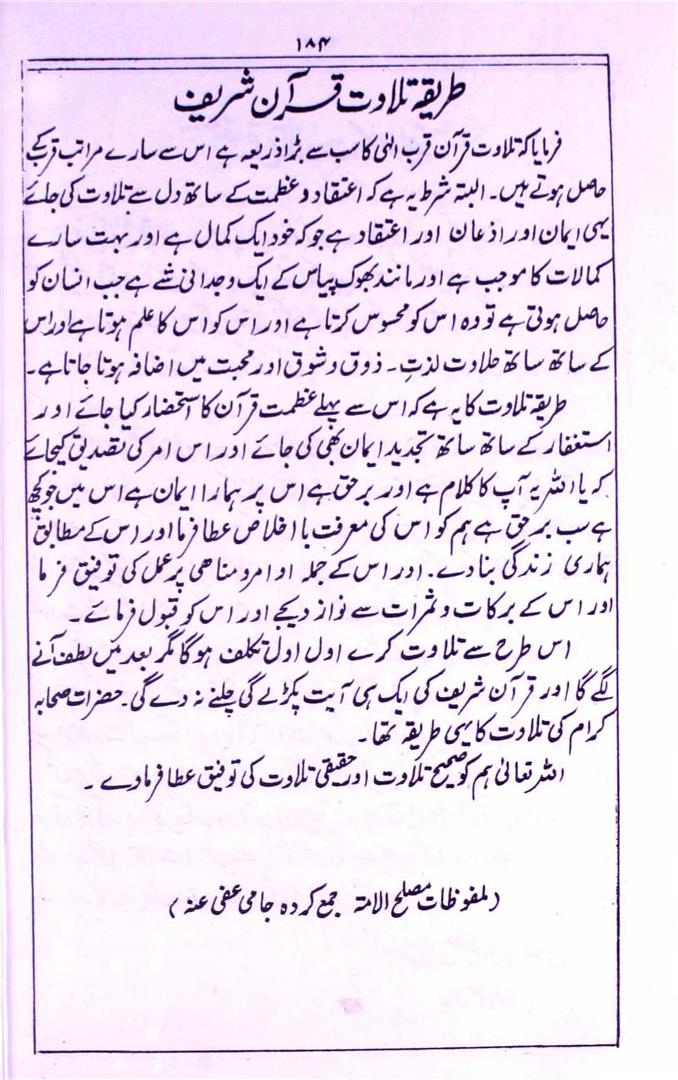 ۱۸۴
طریقہ تلاوت قرآن شریف
فرمایا کہ تلاوت قرآن قرب الٰہی کا سب سے بڑا ذریعہ ہے اس سے سارے مراتب قرب کے
حاصل ہوتے ہیں۔ البتہ شرط یہ ہے کہ اعتقاد و عظمت کے ساتھ دل سے تلاوت کی جائے
یہی ایمان اور اذعان اور اعتقاد ہے جو کہ خود ایک کمال ہے اور بہت سارے
کمالات کا موجب ہے اور مانند بھوک پیاس کے ایک وجدانی شے ہے جب انسان کو
حاصل ہوتی ہے تو وہ اس کو محسوس کرتا ہے اور اس کو اس کا علم ہوتا ہے اور اس
کے ساتھ ساتھ حلاوت لذت۔ ذوق و شوق اور محبت میں اضافہ ہوتا جاتا ہے۔
طریقہ تلاوت کا یہ ہے کہ اس سے پہلے عظمت قرآن کا استحضار کیا جائے اور
استغفار کے ساتھ ساتھ تجدید ایمان بھی کی جائے اور اس امر کی تصدیق کیجائے
کہ یا اللہ یہ آپ کا کلام ہے اور برحق ہے اس پر ہمارا ایمان ہے اس میں جو کچھ
ہے سب برحق ہے ہم کو اس کی معرفت با اخلاص عطا فرما اور اس کے مطابق
ہماری زندگی بنا دے۔ اور اس کے جملہ اوامر و مناھی پر عمل کی توفیق فرما
اور اس کے برکات و ثمرات سے نواز دیجے اور اس کو قبول فرمائے۔
اس طرح سے تلاوت کرے اول اول تکلف ہوگا مگر بعد میں لطف آنے
لگے گا اور قرآن شریف کی ایک ہی آیت پکڑ لے گی چلنے نہ دے گی۔ حضرات صحابہ
کرام کی تلاوت کا یہی طریقہ تھا۔
اللہ تعالیٰ ہم کو صحیح تلاوت اور حقیقی تلاوت کی توفیق عطا فرمادے۔
(ملفوظات مصلح الامتہ جمع کردہ جامی عفی عنہ)